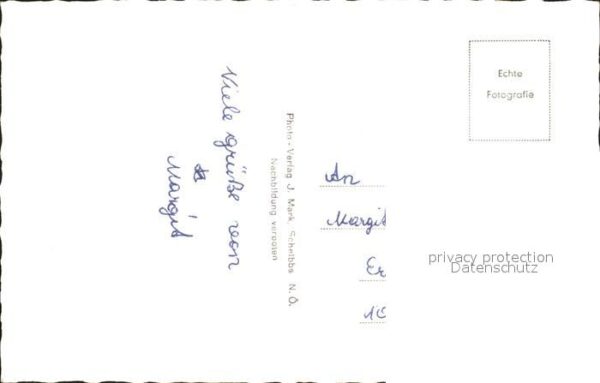 Viele Grüße von
Margit
Photo-Verlag J. Mark, Scheibbs N. Ö.
Nachbildung verboten
Echte
Fotografie
An
Margit
Er
10
privacy protection
Datenschutz